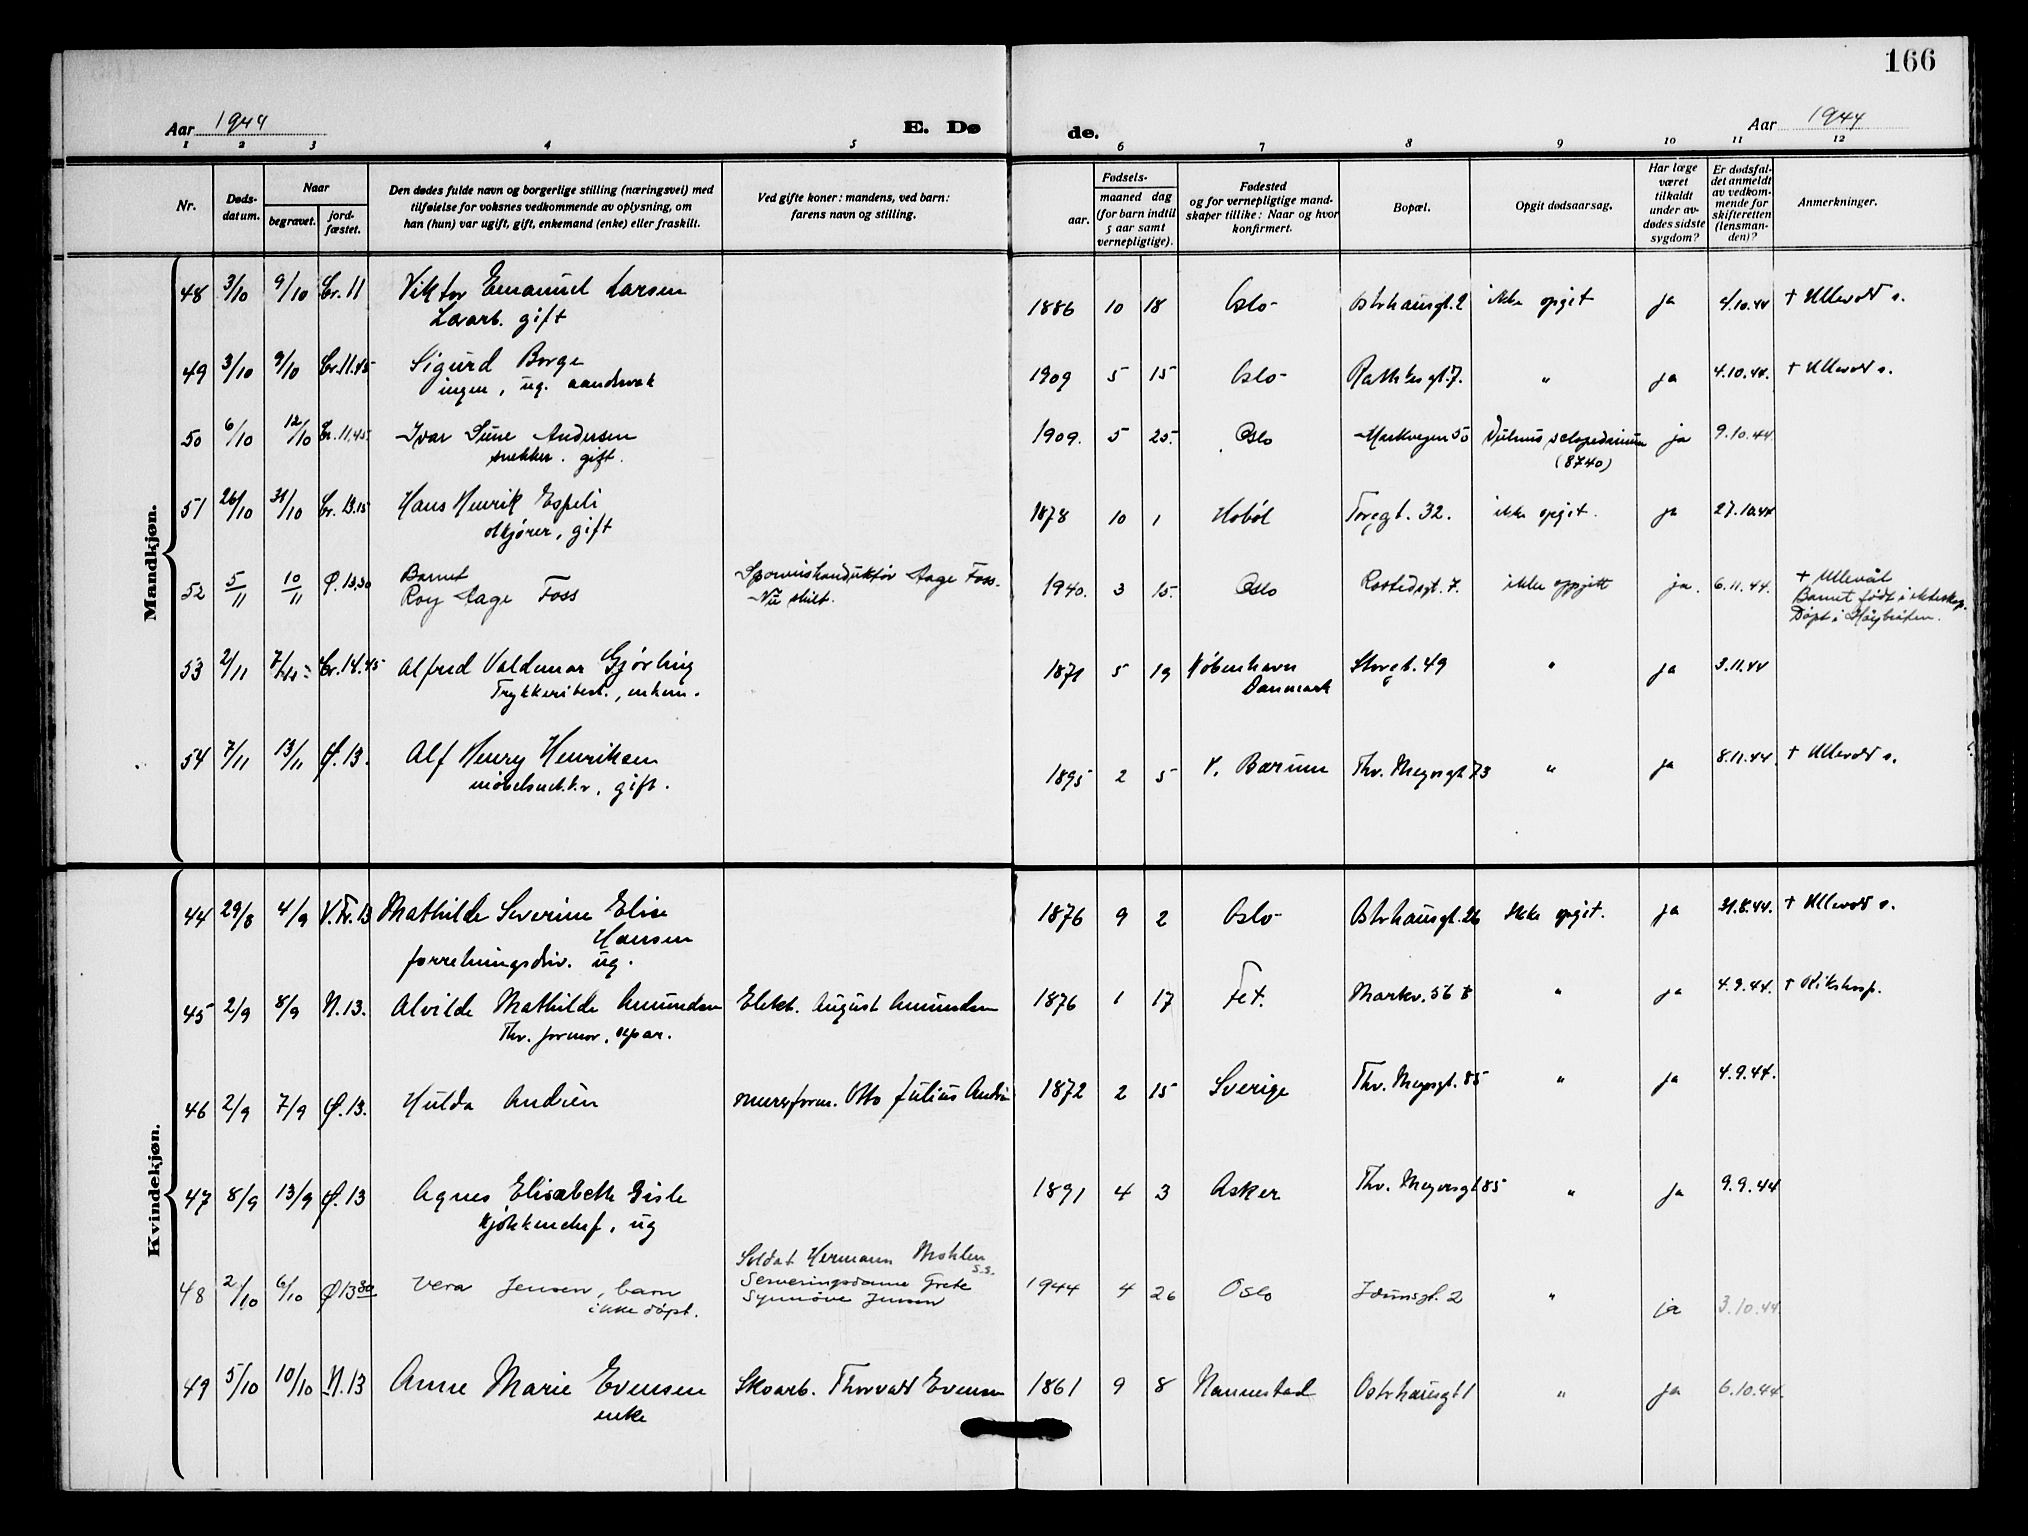 166
Aar 1944
E. Dø
de.
Aar 1944
1 2 3 4 5 6 7 8 9 10 11 12
Nr.
Døds-
datum.
Naar
begravet.
jord-
fæstet.
Den dødes fulde navn og borgerlige stilling (næringsvei) med
tilføielse for voksnes vedkommende av oplysning, om
han (hun) var ugift, gift, enkemand (enke) eller fraskilt.
Ved gifte koner: mandens, ved barn:
farens navn og stilling.
Fødsels-
aar.
maaned dag
(for barn indtil
5 aar samt
vernepligtige).
Fødested
og for vernepligtige mand-
skaper tillike: Naar og hvor
konfirmert.
Bopæl.
Opgit dødsaarsag.
Har læge
været
tilkaldt
under av-
dødes sidste
sygdom?
Er dødsfal-
det anmeldt
av vedkom-
mende for
skifteretten
(lensman-
den)?
Anmerkninger.
Mandkjøn.
48 3/10 9/10 Cr. 11 Viktor Emanuel Larsen 1886 10 18 Oslo Osterhausgt. 2 ikke opgit ja 4/10.44 + Ullevål s.
gift
49 3/10 9/10 Cr. 11.45 Sigurd Borge 1909 5 15 Oslo Rathkesgt. 7. " ja 4.10.44. + Ullevål s.
ingen, ug. aandsvak
50 6/10 12/10 Cr. 11.45. Ivar Sune Andersen 1909. 5 25. Oslo Markvegen 50 Vulnus sclopedarium ja 9.10.44.
snekker. gift. (8740)
51 26/10 31/10 Cr. 13.15 Hans Henrik Espeli 1878 10 1 Hobøl Torggt. 32. ikke opgit. ja 27.10.44
ølkjører, gift
52 5/11 10/11 Ø. 13.30 Barnet
Roy Aage Foss Sporveiskonduktør Aage Foss. 1940. 3 15. Oslo Rostedsgt. 7. ikke oppgitt ja. 6.11.44. + Ullevål
Nu skilt. Barnet født i ekteskap.
Døpt i Høybråten.
53 2/11 7/11 Cr. 14.45 Alfred Valdemar Gjörling 1871 5 19 København Storgt. 49 " ja 3.11.44
Trykkeribest., enkem. Danmark
54 7/11 13/11 Ø. 13. Alf Henry Henriksen 1895 2 5 V. Bærum Thv. Meyersgt 73 " ja 8.11.44. + Ullevål s.
møbelsnekker, gift.
Kvindekjøn.
44 29/8 4/9 V. Fr. 13 Mathilde Severine Elise 1876 9 2 Oslo Osterhausgt. 26 Ikke opgit. ja 31.8.44. + Ullevål s.
Hansen
forretningsdriv. ug.
45 2/9 8/9 N. 13. Alvilde Mathilde Amundsen Elekt. August Amundsen 1876 1 17 Fet. Markv. 56 " ja 4.9.44. + Rikshosp.
46 2/9 7/9 Ø. 13. Hulda Andrén murerform. Otto Julius Andrén 1872 2 15 Sverige Thv. Meyersgt. 85 " ja 4.9.44.
47 8/9 13/9 Ø. 13 Agnes Elisabeth Gisle 1891 4 3 Asker Thv. Meyersgt 85 " ja 9.9.44
kjøkkenchef, ug
48 2/10 6/10 Ø 13 30 Vera Jensen, barn Soldat Hermann Mohlen 1944 4 26 Oslo Idunsgt. 2 " ja 3.10.44.
ikke døpt. S.S.
Serveringsdame Grete
Synnöve Jensen
49 5/10 10/10 N. 13 Anne Marie Evensen Skoarb. Thorvald Evensen 1861 9 8 Nannestad Osterhausgt 1 " ja 6.10.44.
enke